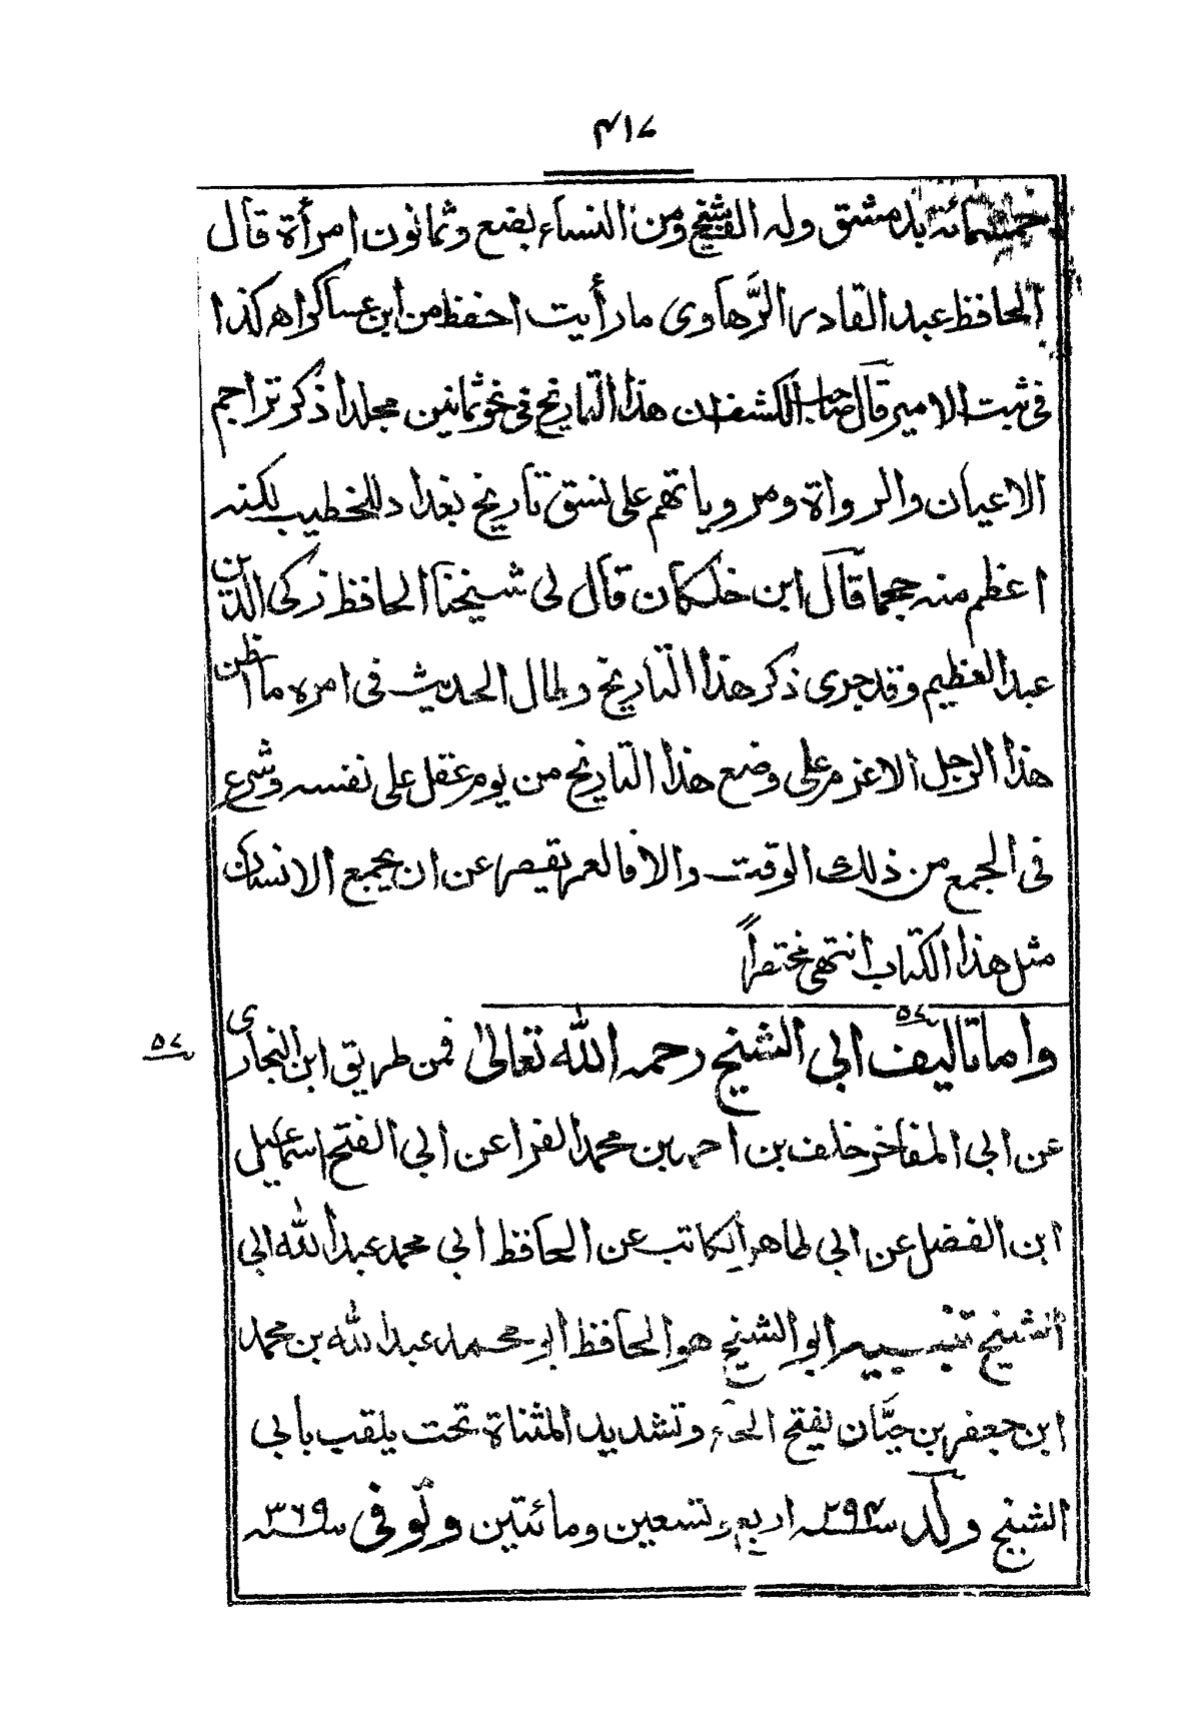 ٤١٧
خمسمائة بدمشق وله الف شيخ ومن النساء بضع وثمانون امرأة قال
الحافظ عبد القادر الرَّهاوى ما رأيت احفظ من ابن عساكر اهـ كذا
فى ثبت الامير قال صاحب الكشف ان هذا التاريخ فى نحو ثمانين مجلدا ذكر تراجم
الاعيان والرواة ومروياتهم على نسق تاريخ بغداد للخطيب لكنه
اعظم منه حجما قال ابن خلكان قال لى شيخنا الحافظ زكى الدين
عبد العظيم وقد جرى ذكر هذا التاريخ وطال الحديث فى امره ما اظن
هذا الرجل الا عزم على وضع هذا التاريخ من يوم عقل على نفسه وشرع
فى الجمع من ذلك الوقت والا فالعمر يقصر عن ان يجمع الانسان
مثل هذا الكتاب انتهى مختصراً
واما تاليف ابى الشيخ رحمه الله تعالى فمن طريق ابن النجارى
٥٧
عن ابى المفاخر خلف بن احمد بن محمد الفرا عن ابى الفتح اسماعيل
ابن الفضل عن ابى طاهر الكاتب عن الحافظ ابى محمد عبد الله ابى
الشيخ تنبيه ابو الشيخ هو الحافظ ابو محمد عبد الله بن محمد
ابن جعفر بن حيَّان بفتح الحاء وتشديد المثناة تحت يلقب بابى
الشيخ ولد سنة ٢٩٤ اربع وتسعين ومائتين وتوفى سنة ٣٦٩